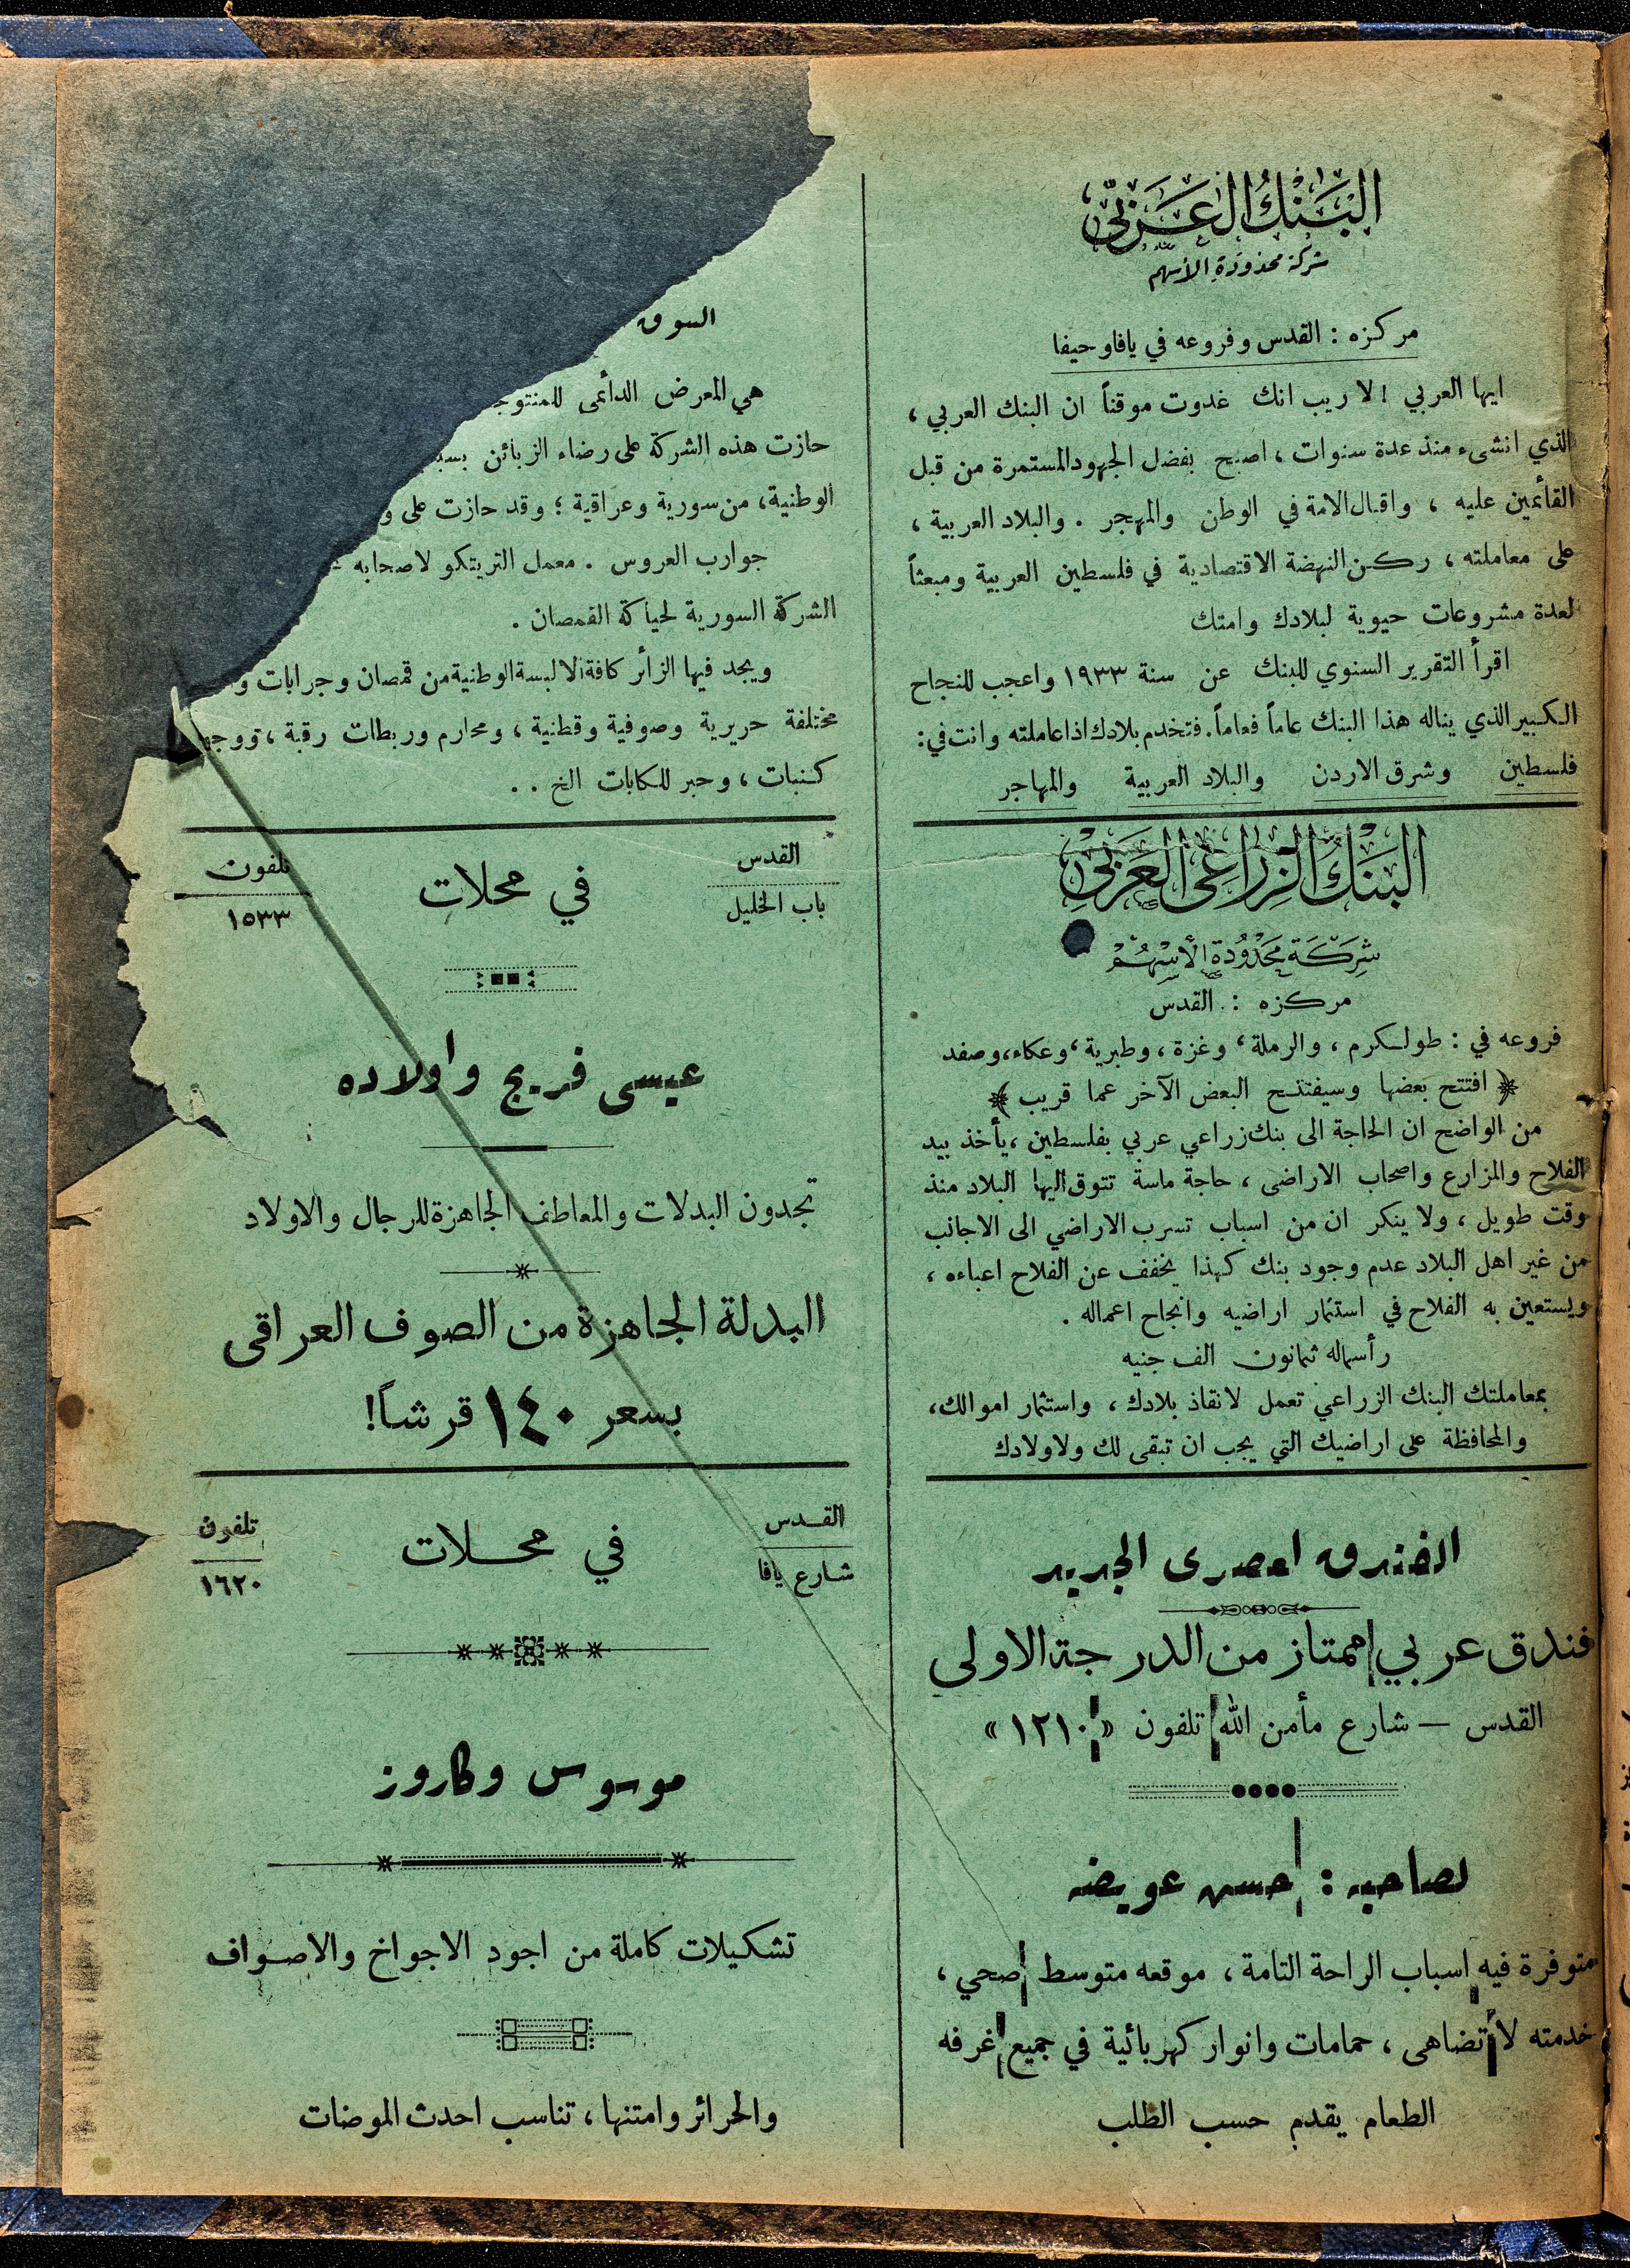 البنك العربي
شركة محدودة الأسهم
مركزه : القدس وفروعه في يافا وحيفا
ايها العربي ! لا ريب انك غدوت موقناً ان البنك العربي ،
الذي انشىء منذ عدة سنوات ، اصبح بفضل الجهود المستمرة من قبل
القائمين عليه ، واقبال الامة في الوطن والمهجر . والبلاد العربية ،
على معاملته ، ركن النهضة الاقتصادية في فلسطين العربية ومبعثاً
لعدة مشروعات حيوية لبلادك وامتك
اقرأ التقرير السنوي للبنك عن سنة ١٩٣٣ واعجب للنجاح
الكبير الذي يناله هذا البنك عاماً فعاماً . فتخدم بلادك اذا عاملته وانت في :
فلسطين وشرق الاردن والبلاد العربية والمهاجر
البنك الزراعي العربي
شركة محدودة الأسهم
مركزه : القدس
فروعه في : طولكرم ، والرملة ، وغزة ، وطبرية ، وعكاء ، وصفد
﴿ افتتح بعضها وسيفتتح البعض الآخر عما قريب ﴾
من الواضح ان الحاجة الى بنك زراعي عربي بفلسطين ، يأخذ بيد
الفلاح والمزارع واصحاب الاراضي ، حاجة ماسة تتوق اليها البلاد منذ
وقت طويل ، ولا ينكر ان من اسباب تسرب الاراضي الى الاجانب
من غير اهل البلاد عدم وجود بنك كهذا يخفف عن الفلاح اعباءه ،
ويستعين به الفلاح في استثمار اراضيه وانجاح اعماله .
رأسماله ثمانون الف جنيه
بمعاملتك البنك الزراعي تعمل لانقاذ بلادك ، واستثمار اموالك ،
والمحافظة على اراضيك التي يجب ان تبقى لك ولاولادك
الفندق العصرى الجديد
فندق عربي ممتاز من الدرجة الاولى
القدس — شارع مأمن الله تلفون « ١٢١٠ »
لصاحبه : حسن عويضه
متوفرة فيه اسباب الراحة التامة ، موقعه متوسط صحي ،
خدمته لا تضاهى ، حمامات وانوار كهربائية في جميع غرفه
الطعام يقدم حسب الطلب
السوق
هي المعرض الدائمى للمنتوج
حازت هذه الشركة على رضاء الزبائن بسبب
الوطنية ، من سورية وعراقية ؛ وقد حازت على و
جوارب العروس . معمل التريتكو لاصحابه
الشركة السورية لحياكة القمصان .
ويجد فيها الزائر كافة الالبسة الوطنية من قمصان وجرابات و
مختلفة حريرية وصوفية وقطنية ، ومحارم وربطات رقبة ، ووجو
كنبات ، وحبر للكتابات الخ . .
القدس
باب الخليل
في محلات
تلفون
١٥٣٣
عيسى فريج واولاده
تجدون البدلات والمعاطف الجاهزة للرجال والاولاد
البدلة الجاهزة من الصوف العراقى
بسعر ١٤٠ قرشاً!
القدس
شارع يافا
في محلات
تلفون
١٦٢٠
موسوس وكاروز
تشكيلات كاملة من اجود الاجواخ والاصواف
والحرائر وامتنها ، تناسب احدث الموضات